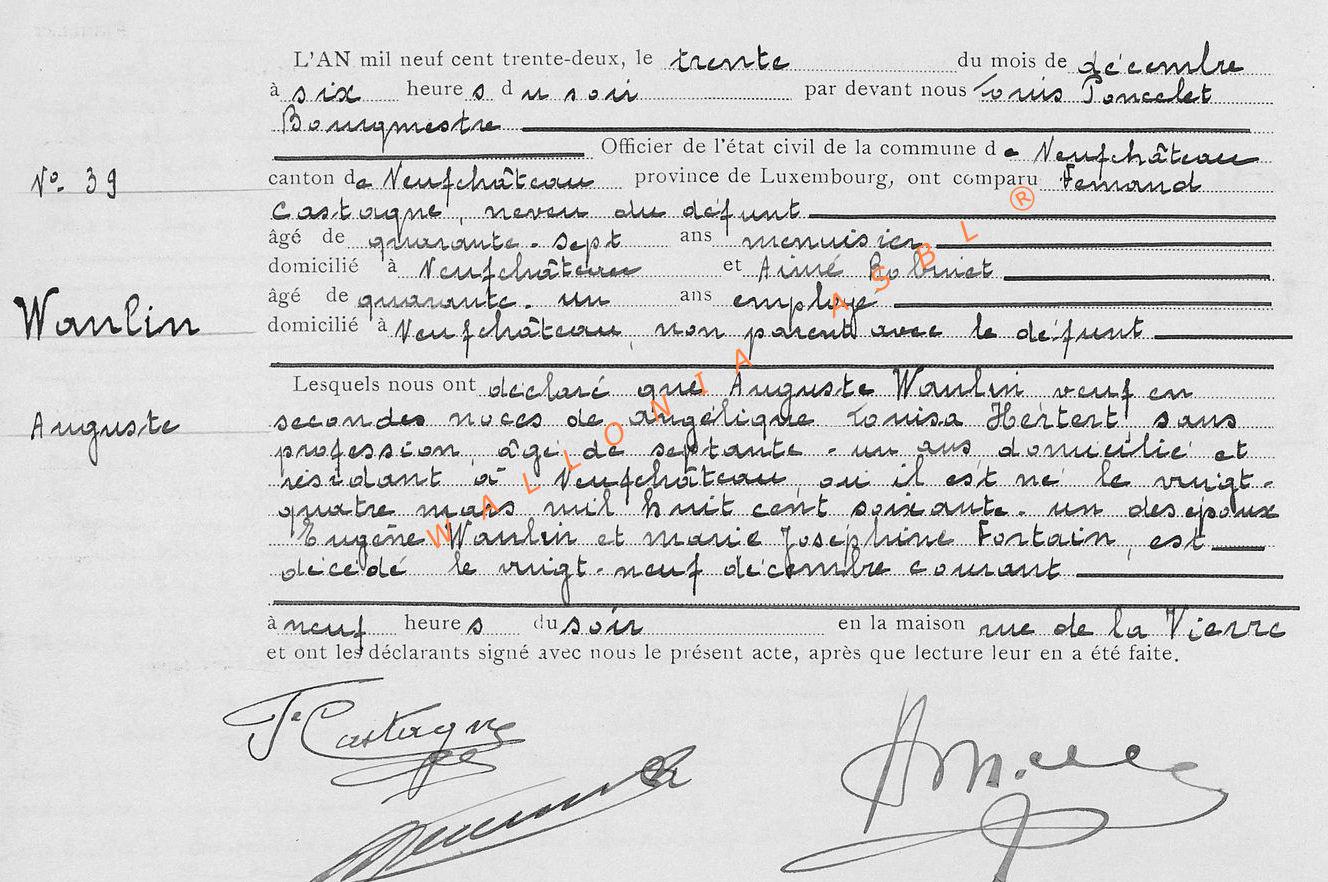 L'AN mil neuf cent trente-deux, le trente du mois de décembre
à six heures du soir par devant nous Louis Poncelet
Bourgmestre
Officier de l'état civil de la commune de Neufchâteau
No. 39
canton de Neufchâteau province de Luxembourg, ont comparu Fernand
Castagne, neveu du défunt
âgé de quarante-sept ans menuisier
domicilié à Neufchâteau et Aimé Robinet
âgé de quarante-un ans employé
Waulin
domicilié à Neufchâteau, non parent avec le défunt
Lesquels nous ont déclaré que Auguste Waulin veuf en
Auguste
secondes noces de Angélique Louisa Hertert sans
profession, âgé de septante-un ans domicilié et
résidant à Neufchâteau, où il est né le vingt-
quatre mars mil huit cent soixante-un des époux
Eugène Waulin et Marie Joséphine Fortain, est
décédé le vingt-neuf décembre courant
à neuf heures du soir en la maison rue de la Vierre
et ont les déclarants signé avec nous le présent acte, après que lecture leur en a été faite.
Castagne
WALLONIA ASBL ®